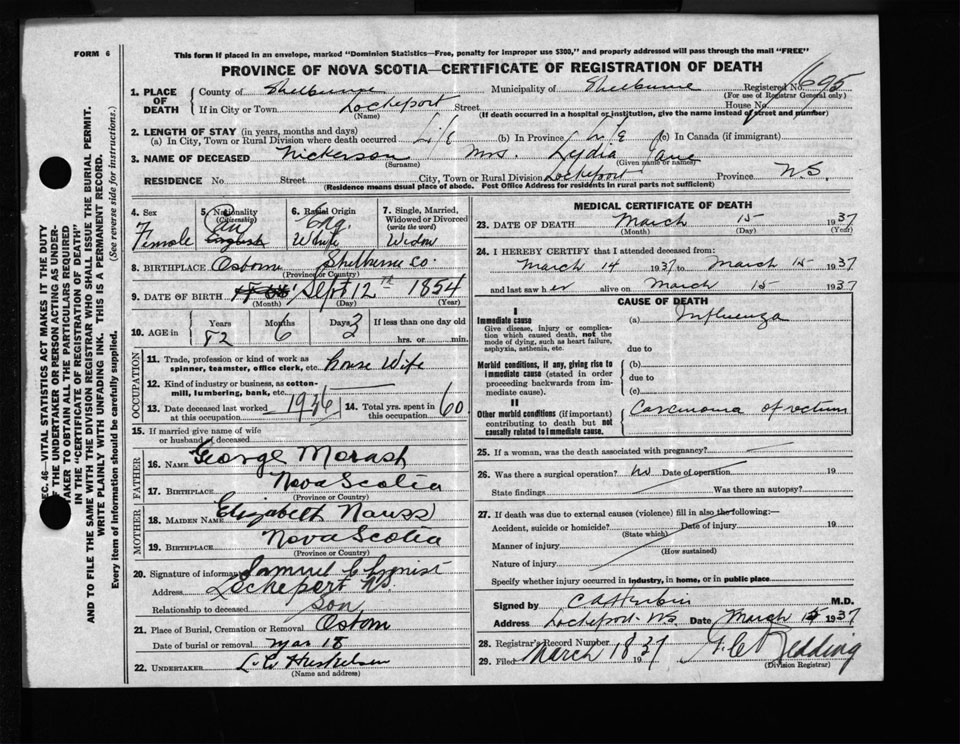 FORM 6
This form if placed in an envelope, marked "Dominion Statistics—Free, penalty for improper use $300," and properly addressed will pass through the mail "FREE"
PROVINCE OF NOVA SCOTIA—CERTIFICATE OF REGISTRATION OF DEATH
1. PLACE OF DEATH County of Shelburne Municipality of Shelburne Registered No. 695
(For use of Registrar General only)
If in City or Town Lockeport Street House No.
(Name) (If death occurred in a hospital or institution, give the name instead of street and number)
2. LENGTH OF STAY (in years, months and days)
(a) In City, Town or Rural Division where death occurred Life (b) In Province Life (c) In Canada (if immigrant)
3. NAME OF DECEASED Nickerson Mrs. Lydia Jane
(Surname) (Given name or names)
RESIDENCE No. Street City, Town or Rural Division Lockeport Province N.S.
(Residence means usual place of abode. Post Office Address for residents in rural parts not sufficient)
4. Sex Female
5. Nationality (Citizenship) Can English
6. Racial Origin Eng. White
7. Single, Married, Widowed or Divorced (write the word) Widow
8. BIRTHPLACE Osborn Shelburne Co.
(Province or Country)
9. DATE OF BIRTH Sept 12th 1854
(Month) (Day) (Year)
10. AGE in Years 82 Months 6 Days 3 If less than one day old hrs. or min.
OCCUPATION
11. Trade, profession or kind of work as spinner, teamster, office clerk, etc. house Wife
12. Kind of industry or business, as cotton-mill, lumbering, bank, etc.
13. Date deceased last worked at this occupation 1936 14. Total yrs. spent in this occupation 60
15. If married give name of wife or husband of deceased
FATHER
16. NAME George Morash
17. BIRTHPLACE Nova Scotia
(Province or Country)
MOTHER
18. MAIDEN NAME Elizabeth Nauss
19. BIRTHPLACE Nova Scotia
(Province or Country)
20. Signature of informant Samuel C
Address Lockeport N.S.
Relationship to deceased Son
21. Place of Burial, Cremation or Removal Osborn
Date of burial or removal Mar 18
22. UNDERTAKER
(Name and address)
MEDICAL CERTIFICATE OF DEATH
23. DATE OF DEATH March 15 1937
(Day) (Year)
24. I HEREBY CERTIFY that I attended deceased from:
March 14 1937 to March 15 1937
and last saw her alive on March 15 1937
CAUSE OF DEATH
I
Immediate cause (a) Influenza
Give disease, injury or complication which caused death, not the mode of dying, such as heart failure, asphyxia, asthenia, etc. due to
Morbid conditions, if any, giving rise to immediate cause (stated in order proceeding backwards from immediate cause). (b)
due to
(c)
II
Other morbid conditions (if important) contributing to death but not causally related to immediate cause. Carcinoma of rectum
25. If a woman, was the death associated with pregnancy?
26. Was there a surgical operation? no Date of operation 19
State findings Was there an autopsy?
27. If death was due to external causes (violence) fill in also the following:—
Accident, suicide or homicide? Date of injury 19
(State which)
Manner of injury
(How sustained)
Nature of injury
Specify whether injury occurred in industry, in home, or in public place
Signed by M.D.
Address Lockeport N.S. Date March 15 1937
28. Registrar's Record Number
29. Filed March 18 1937 Redding
(Division Registrar)
SEC. 46—VITAL STATISTICS ACT MAKES IT THE DUTY
OF THE UNDERTAKER OR PERSON ACTING AS UNDER-
TAKER TO OBTAIN ALL THE PARTICULARS REQUIRED
IN THE "CERTIFICATE OF REGISTRATION OF DEATH"
AND TO FILE THE SAME WITH THE DIVISION REGISTRAR WHO SHALL ISSUE THE BURIAL PERMIT.
WRITE PLAINLY WITH UNFADING INK. THIS IS A PERMANENT RECORD.
Every item of Information should be carefully supplied. (See reverse side for instructions.)